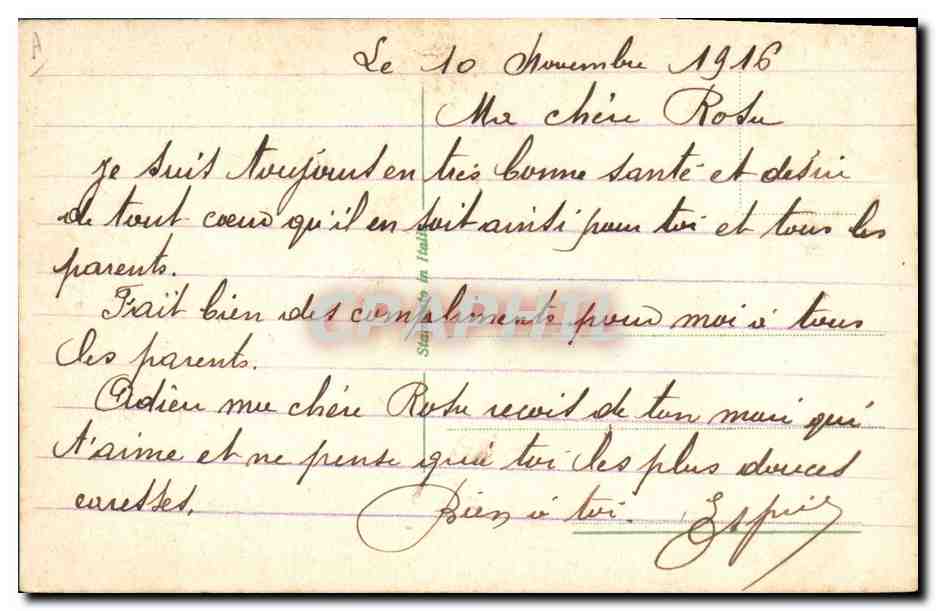 Le 10 Novembre 1916
Ma chère Rose
je suis toujours en très bonne santé et désire
de tout cœur qu'il en soit ainsi pour toi et tous les
parents.
Fait bien des compliments pour moi à tous
les parents.
Adieu ma chère Rose reçois de ton mari qui
t'aime et ne pense qu'à toi les plus douces
caresses.
Bien à toi.
CPAPHIL
in Italie